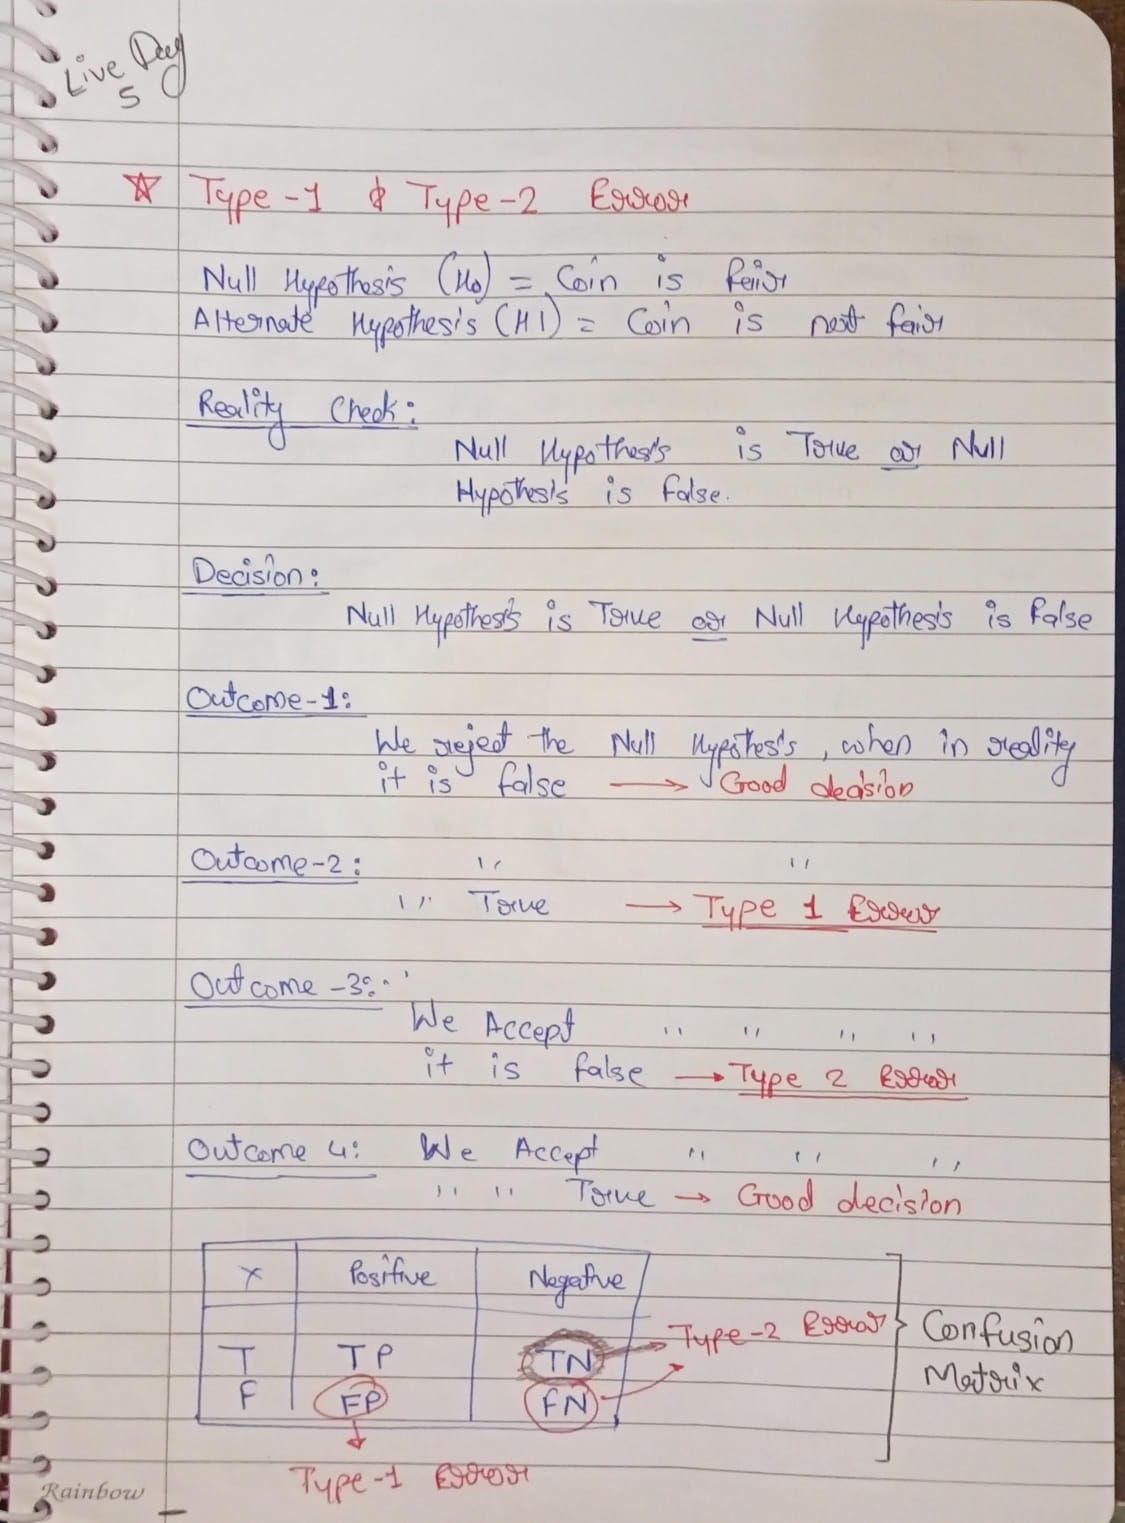 Live Day
5
Type-1 & Type-2 Error
Null Hypothesis (H0) = Coin is fair
Alternate Hypothesis (H1) = Coin is not fair
Reality Check:
Null Hypothesis is True or Null
Hypothesis is false.
Decision:
Null Hypothesis is True or Null Hypothesis is false
Outcome-1:
We reject the Null Hypothesis, when in reality
it is false → Good decision
Outcome-2: '' ''
'' True → Type 1 Error
Outcome-3:
We Accept '' '' '' ''
it is false → Type 2 Error
Outcome 4: We Accept '' '' ''
'' '' True → Good decision
X Positive Negative
T TP TN → Type-2 Error
F FP FN
Type-1 Error
Confusion
Matrix
Rainbow